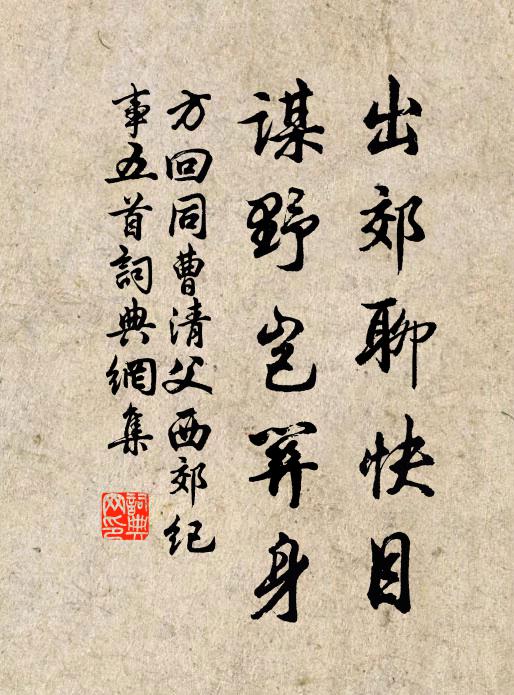 出郊聊快目
謀野豈關身
方回同曹清父西郊紀
事五首詞典網集
詞典
网印